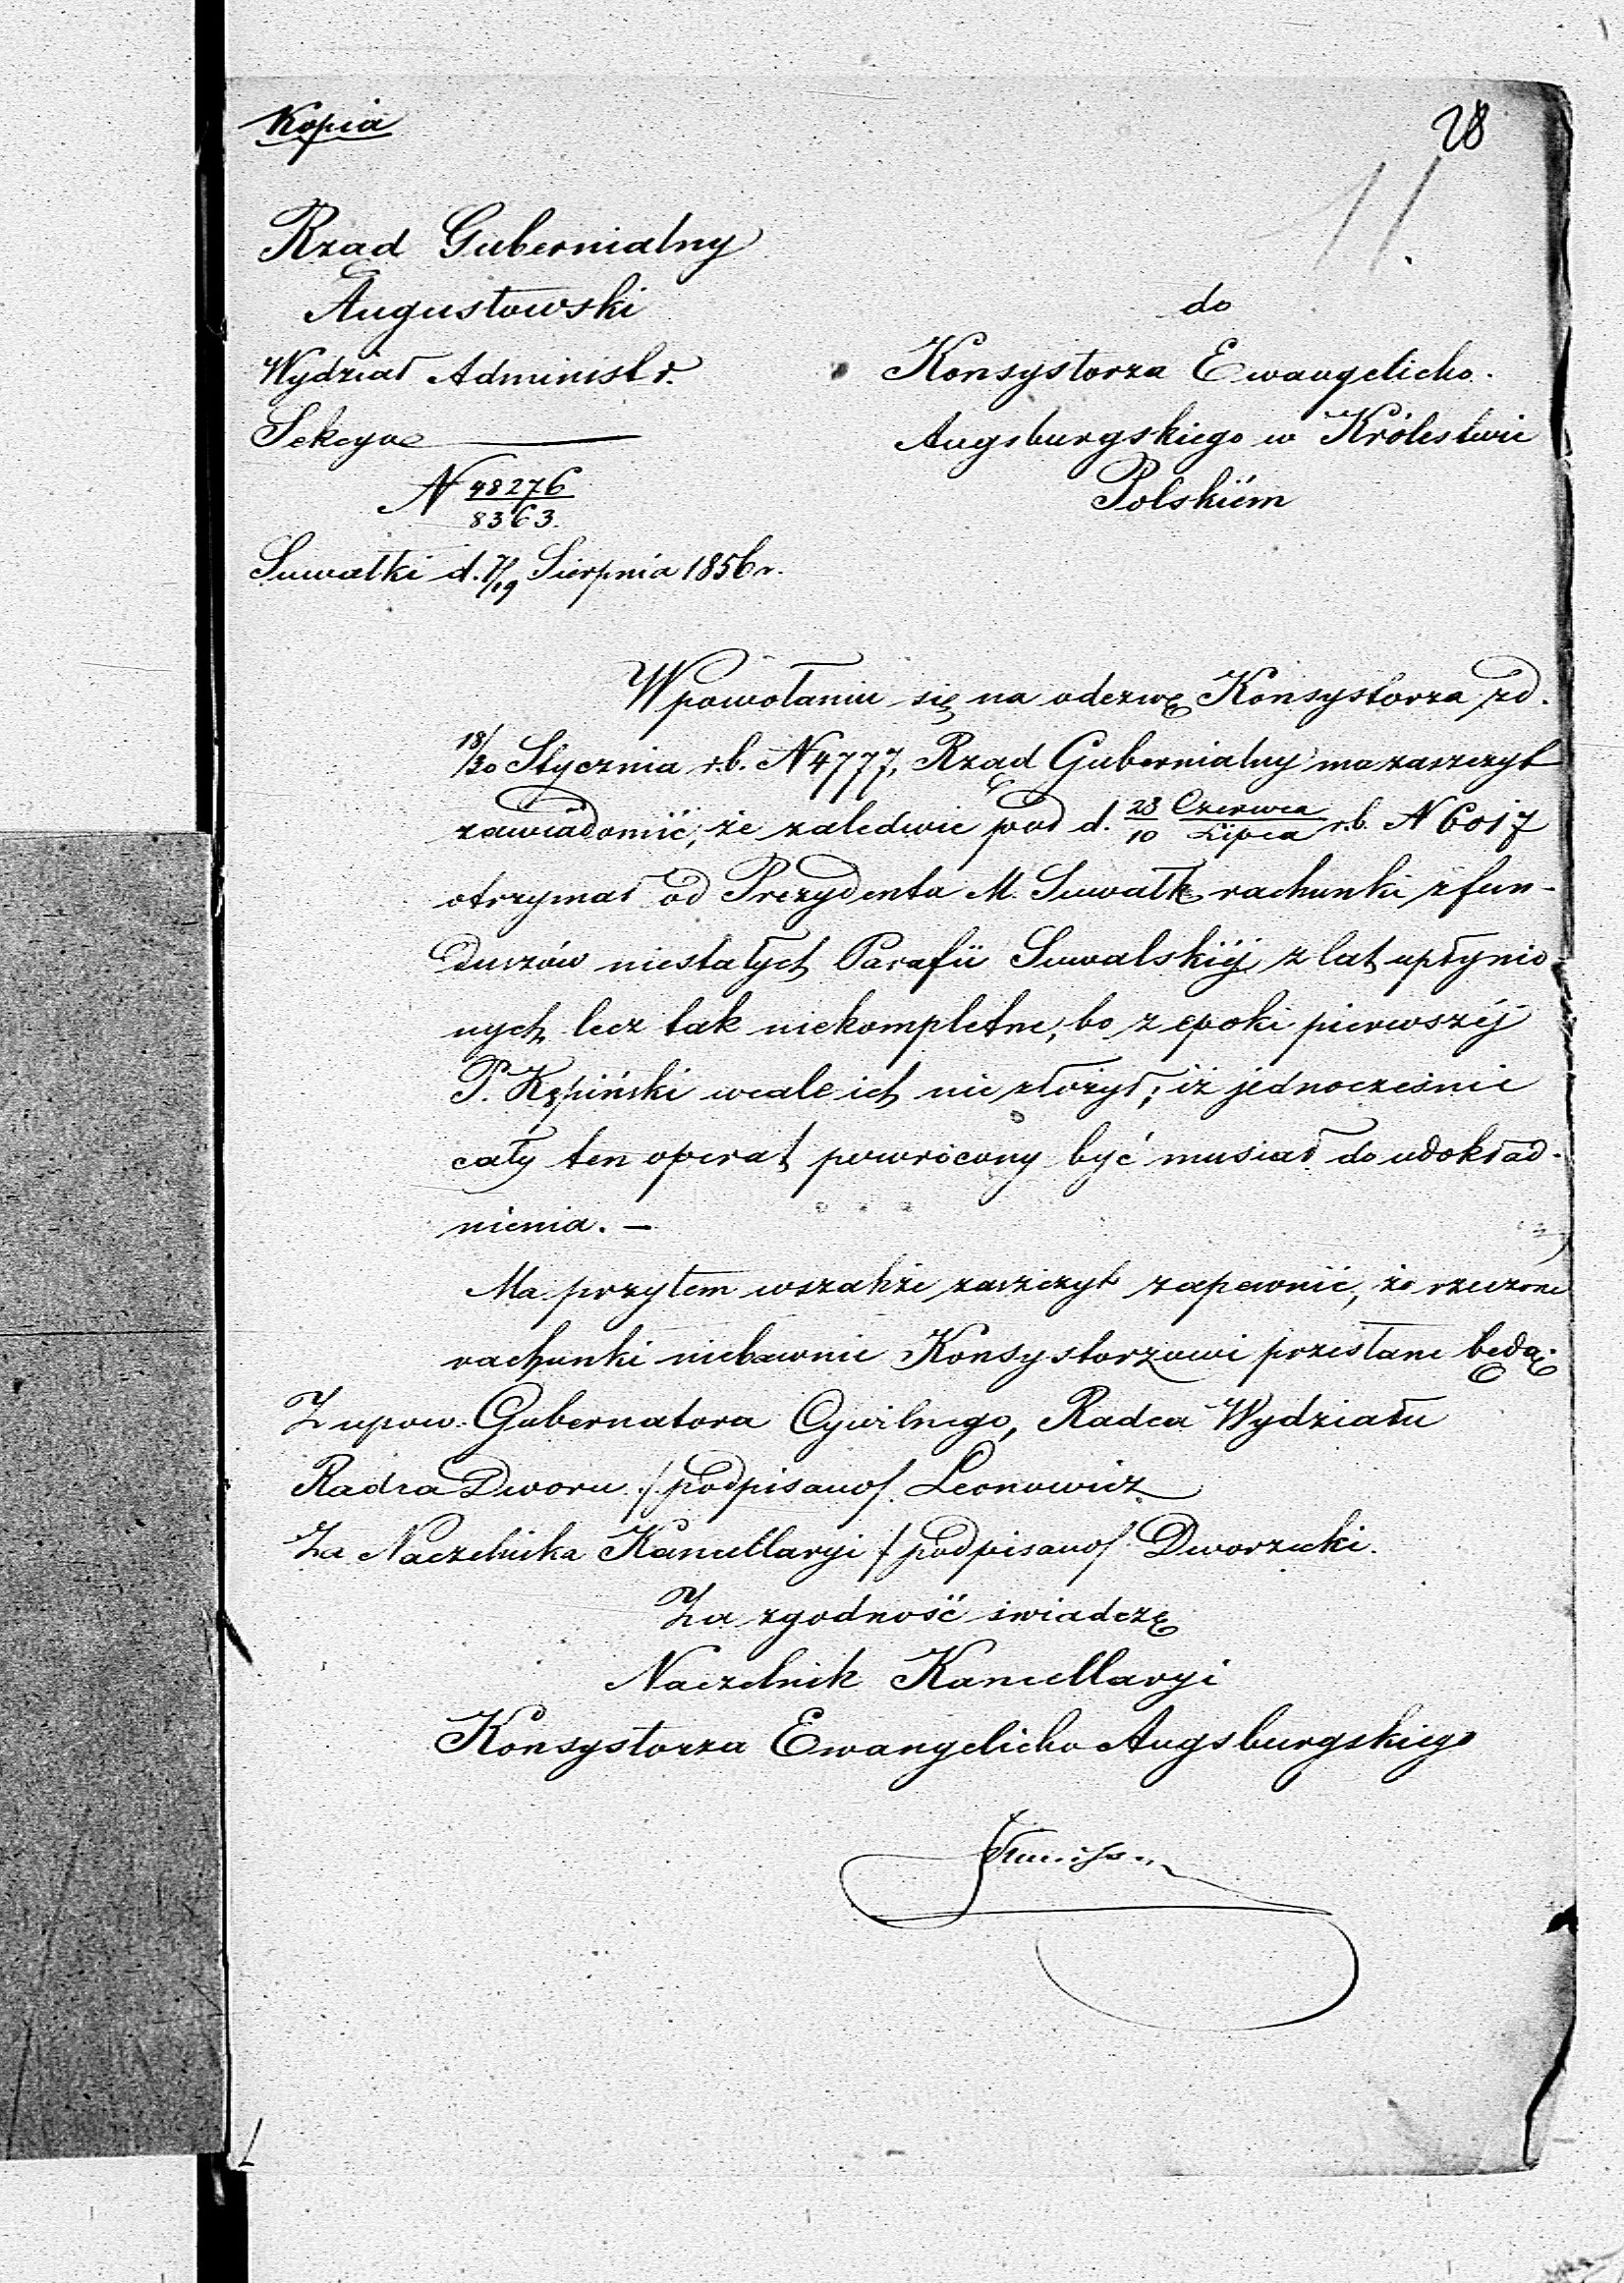 Kopia
28
11
Rząd Gubernialny
Augustowski
Wydział Administr.
Sekcya
N 48276/8363.
Suwałki d. 7/19 Sierpnia 1856 r.
do
Konsystorza Ewangelicko-
Augsburgskiego w Królestwie
Polskiém
W powołaniu się na odezwę Konsystorza z d.
18/30 Stycznia r.b. N 4777, Rząd Gubernialny ma zaszczyt
zawiadomić, że zaledwie pod d. 28 Czerwca/10 Lipca r.b. N 6017
otrzymał od Prezydenta M. Suwałk rachunki z fun-
duszów niestałych Parafii Suwalskiéj z lat upłynio-
nych lecz tak niekompletne, bo z epoki pierwszéj
P. Kępiński wcale ich nie złożył; iż jednocześnie
cały ten operat powrócony być musiał do udokład-
nienia. —
Ma przytem wszakże zaszczyt zapewnić, że rzeczone
rachunki niebawnie Konsystorzowi przesłane będą.
Z upow. Gubernatora Cywilnego, Radca Wydziału
Radca Dworu /podpisano/ Leonowicz
Za Naczelnika Kancellaryi /podpisano/ Dworzecki.
Za zgodność świadczę
Naczelnik Kancellaryi
Konsystorza Ewangelicko Augsburgskiego